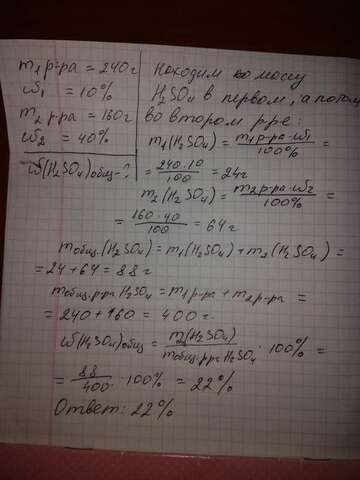 m₁ р-ра = 240г
ω₁ = 10%
m₂ р-ра = 160г
ω₂ = 40%
ω(H₂SO₄)общ-?
Находим массу
H₂SO₄ в первом, а потом
во втором р-ре:
m₁(H₂SO₄) = m₁р-ра·ω₁/100% =
= 240·10/100 = 24г
m₂(H₂SO₄) = m₂р-ра·ω₂/100% =
= 160·40/100 = 64г
mобщ.(H₂SO₄) = m₁(H₂SO₄) + m₂(H₂SO₄) =
= 24 + 64 = 88г
mобщ.р-ра H₂SO₄ = m₁р-ра + m₂р-ра =
= 240 + 160 = 400г.
ω(H₂SO₄)общ = m(H₂SO₄)/mобщ.р-ра H₂SO₄ · 100% =
= 88/400 · 100% = 22%
Ответ: 22%